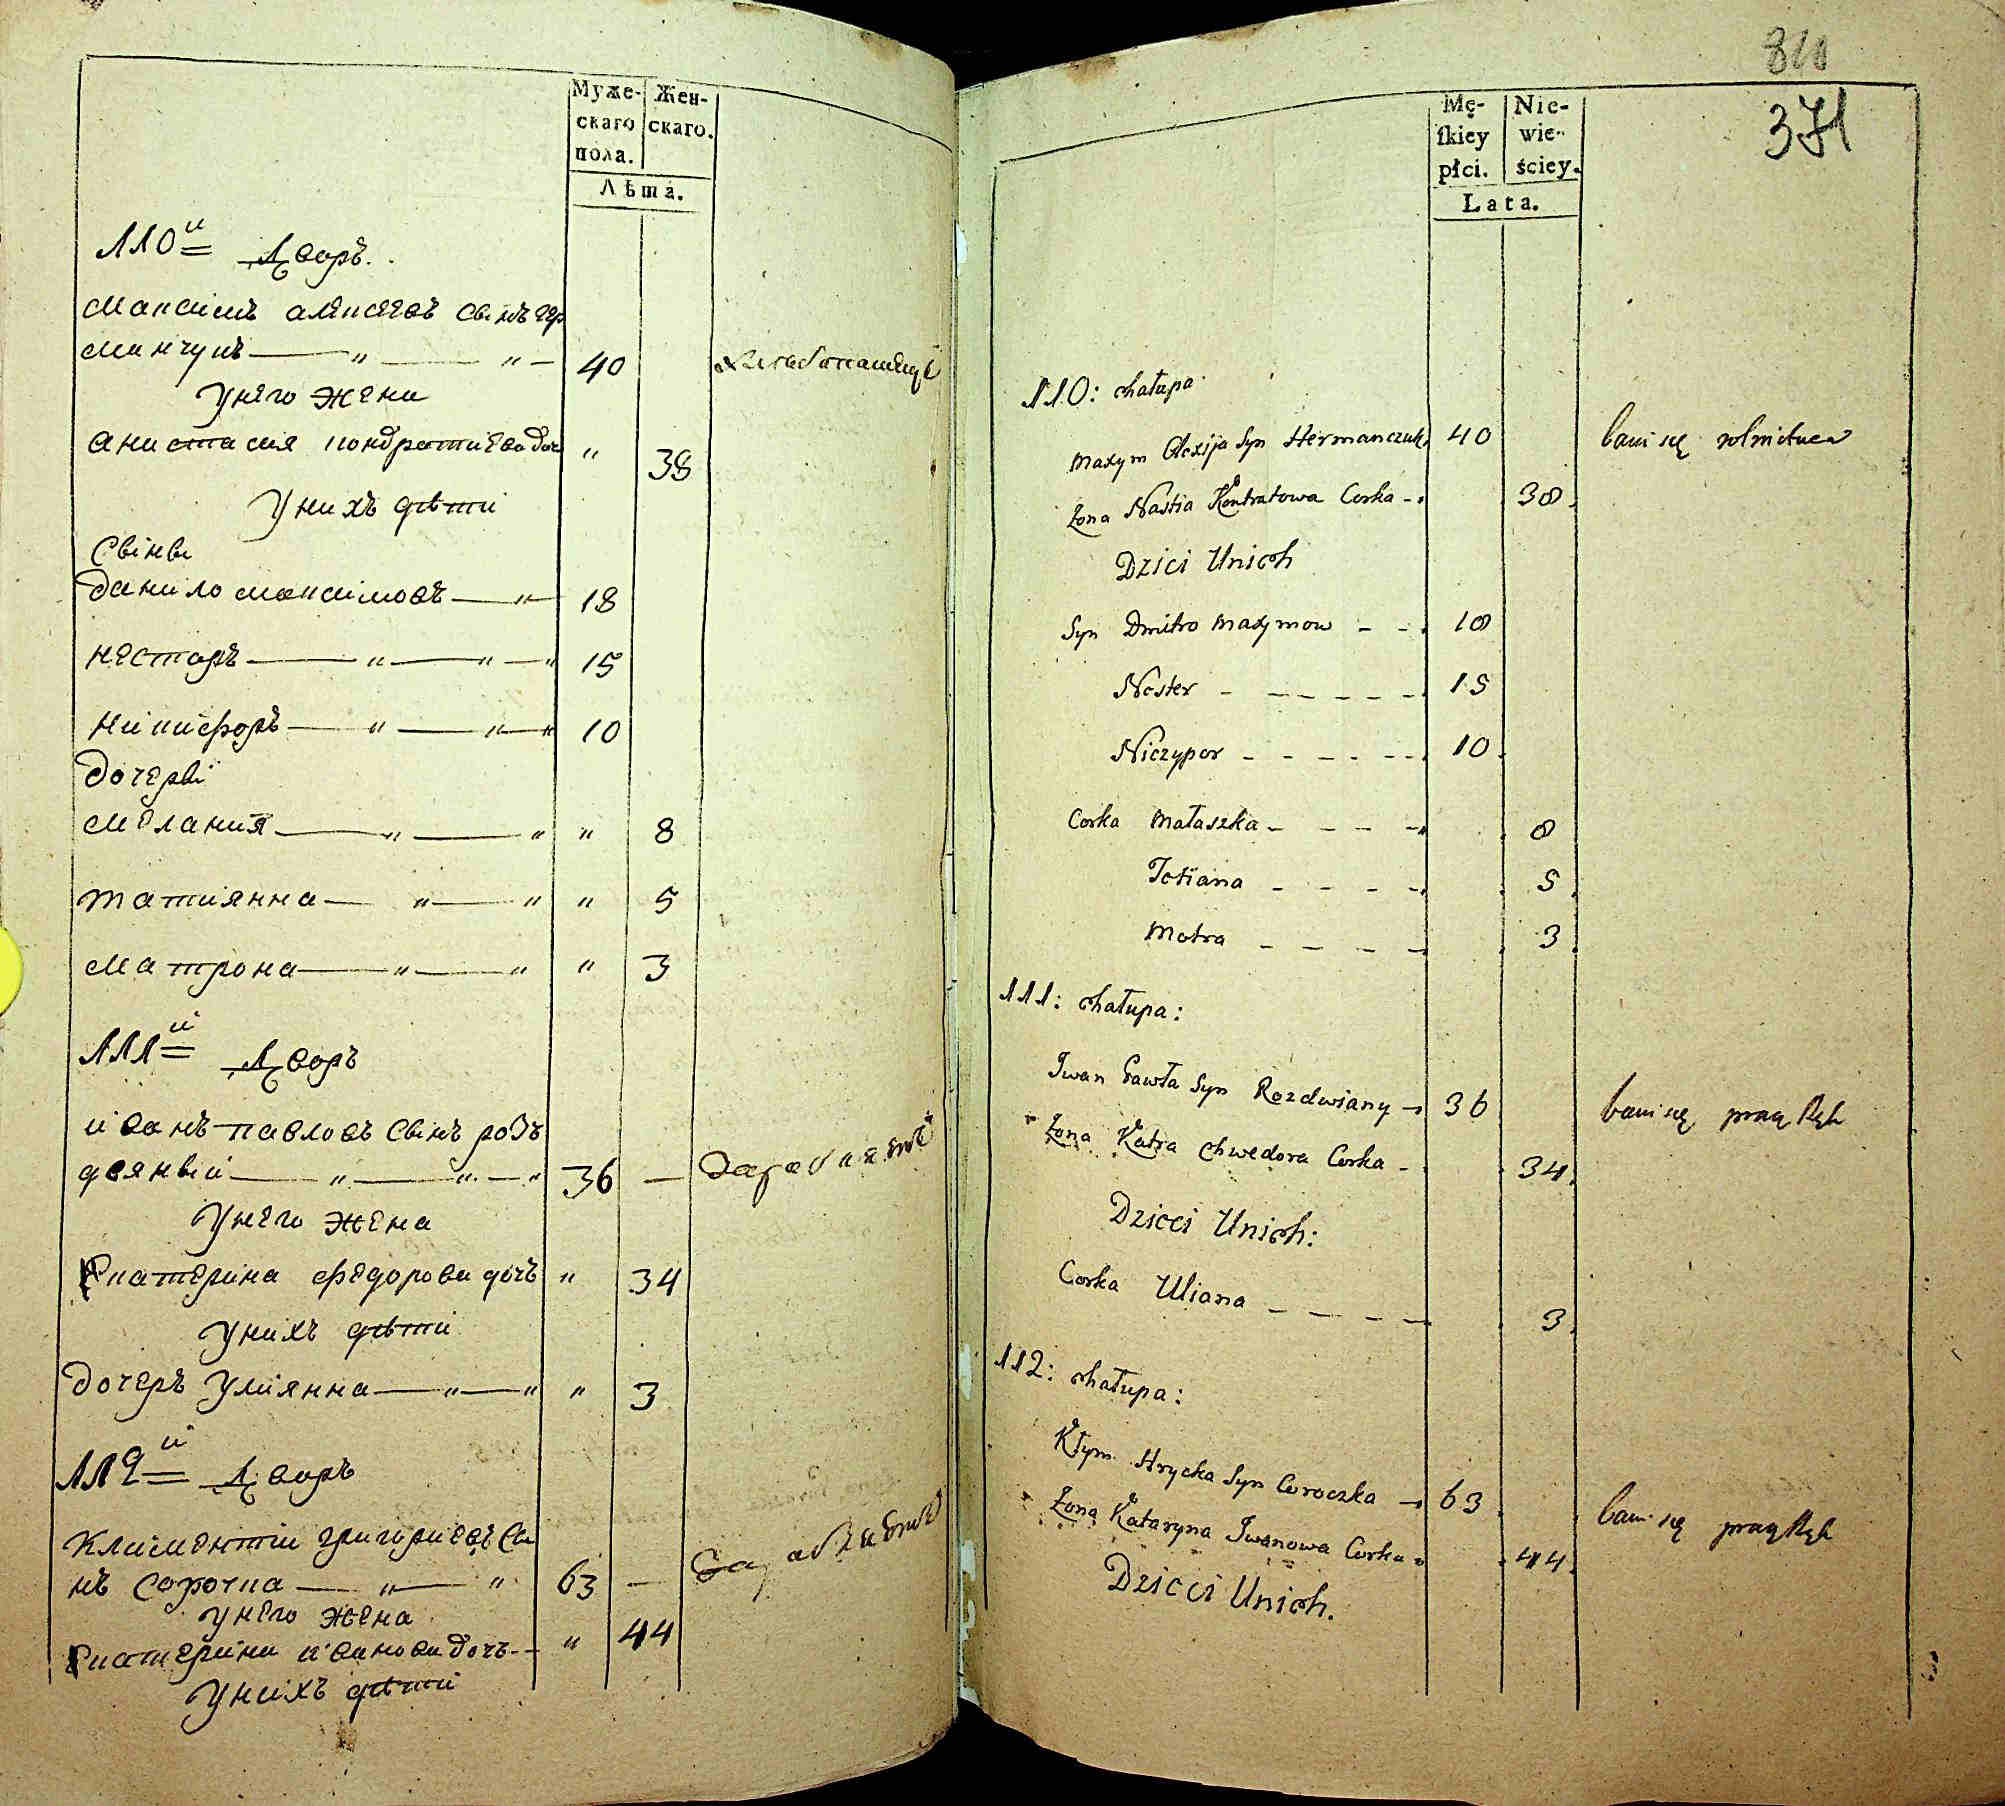 Муже-
скаго
пола.
Жен-
скаго.
Лѣта.
110й Дворъ.
Максимъ алексеевъ синъ гер
манчукъ — " — " — 40 хлебопашецъ
Унего жена
анистасия кондратиева доч " 38
Унихъ дѣти
Сынвы
Данило максимовъ — " — 18
нестаръ — " — " — " 15
никифоръ — " — " — " 10
Дочерви
мелания — " — " " 8
татиянна — " — " " 5
матрона — " — " " 3
111й Дворъ
иванъ павловъ синъ роз
двяный — " — " — " 36 —
Унего жена
Екатерина федорова дочъ " 34
Унихъ дѣти
Дочеръ Улиянна — " — " " 3
112й Дворъ
Климентии григориевъ си
нъ Сорочка — " — " 63 —
Унего жена
Екатерина иванова дочъ - - " 44
Унихъ дѣти
810
371
Mę-
ſkiey
płci.
Nie-
wie-
ściey.
Lata.
110: chałupa
Maxym Olexija Syn Hermanczuk 40 bawi się rolnictwem
Żona Nastia Kontratowa Corka - 38.
Dzici Unich
Syn Dmitro Maxymow - - 18
Nester - - - - - 15
Niczypor - - - - - 10.
Corka Małaszka - - - - 8
Tetiana - - - - 5.
Motra - - - - 3.
111: chałupa:
Iwan Pawła Syn Rozdwiany - 36 bawi się pracą Rąk
Żona Katra Chwedora Corka - 34.
Dzieci Unich:
Corka Uliana - - - - 3.
112: chałupa:
Kłym Hrycka Syn Coroczka - 63 bawi się pracą Rąk
Żona Kataryna Iwanowa Corka - 44.
Dzieci Unich.